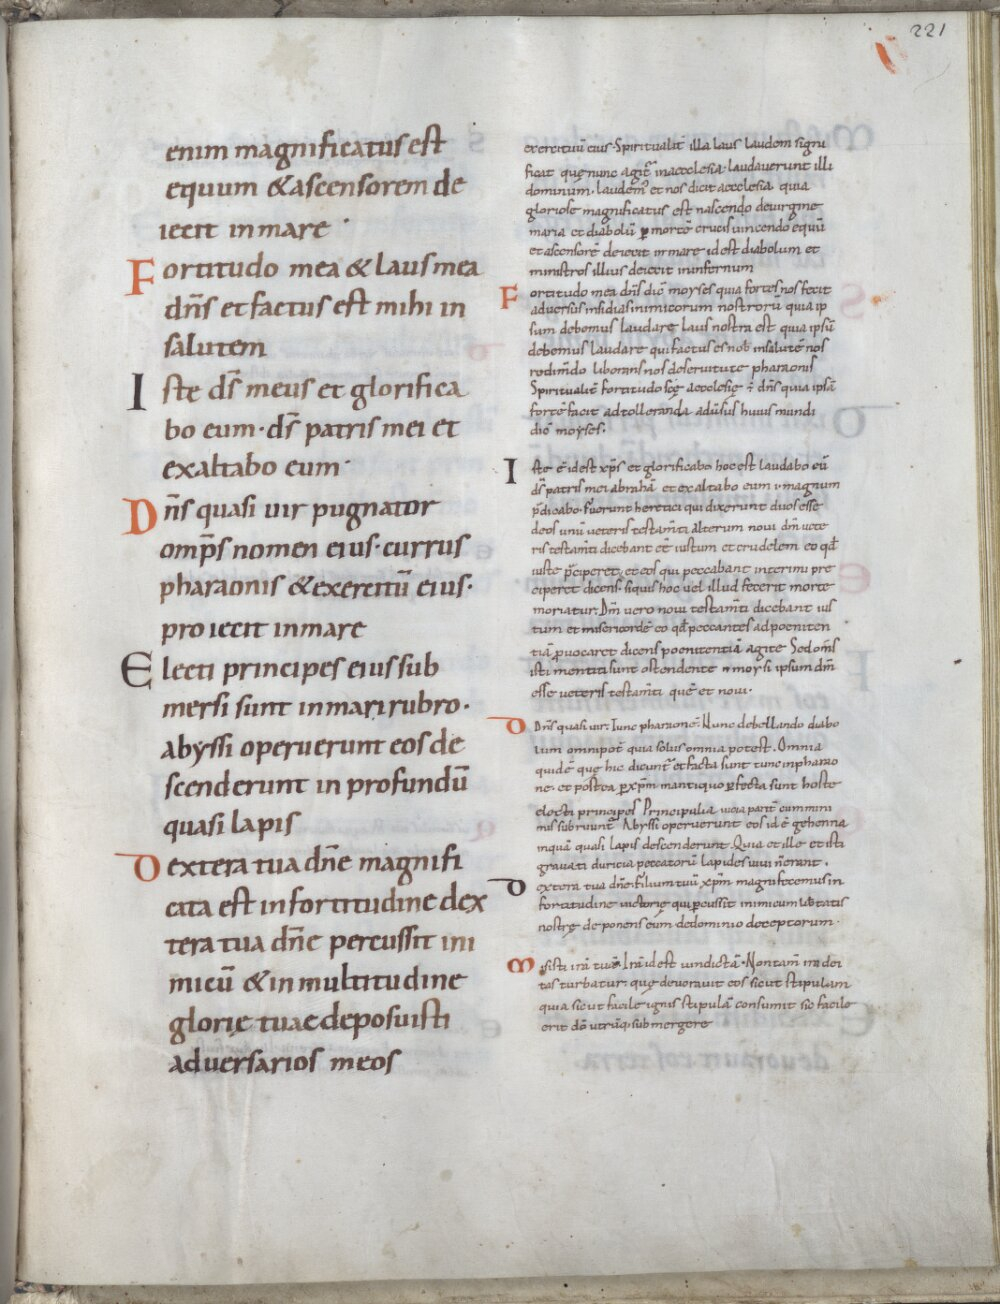 221
enim magnificatus est
equum & ascensorem de
iecit in mare·
Fortitudo mea & laus mea
dn̄s et factus est mihi in
salutem
Iste ds̄ meus et glorifica
bo eum· ds̄ patris mei et
exaltabo eum·
Dn̄s quasi uir pugnator
omp̄s nomen eius· currus
pharaonis & exercitū eius·
proiecit in mare
Electi principes eius sub
mersi sunt in mari rubro·
abyssi operuerunt eos de
scenderunt in profundū
quasi lapis
Dextera tua dn̄e magnifi
cata est in fortitudine dex
tera tua dn̄e percussit ini
micū & in multitudine
glorię tuae deposuisti
adversarios meos
exercituū eius· Spiritualit̄ illa laus laudem signi
ficat quę nunc agit̄ in aecclesia· laudaverunt illi
dominum· laudem᷒ et nos dicit aecclesia quia
gloriose magnificatus est nascendo de uirgine
maria et diabolū ꝑ mortē crucis uincendo equū
et ascensorē deiecit in mare id est diabolum et
ministros illius deiecit in infernum
Fortitudo mea dn̄s dix̄ moyses quia fortes nos fecit
adversus insidias inimicorum nostrorū quia ip
sum debemus laudare laus nostra est quia ipsū
debemus laudare qui factus es nob̄ in salutē nos
redimdo liberans nos de servitute pharaonis
Spiritualit̄ fortitudo scę aecclesię ÷ dn̄s quia ipsā
forte facit ad tolleranda adūsus huius mundi
dix̄ moyses.
Iste ē id est xp̄s et glorificabo hoc est laudabo eū
ds̄ patris mei abrahā et exaltabo eum ·i· magnum
p̄dicabo· Fuerunt heretici qui dixerunt duos esse
deos unū veteris testam̄ti alterum noui dm̄ uete
ris testam̄ti dicebant eē iustum et crudelem eo qd̄
iuste p̄ciperet, et eos qui peccabant interimi pre
ciperet dicens· siquis hoc vel illud fecerit morte
moriatur· Dm̄ vero noui testam̄ti dicebant ius
tum et misericordē eo qd̄ peccantes ad poeniten
tiā ꝓuocaret dicens poenitentiā agite Sed om̄s
isti mentiti sunt ostendente moysi ipsum dm̄
esse ueteris testam̄ti quē et noui·
Dn̄s quasi uir· Tunc pharaonē· Nunc debellando diabo
lum omnipot̄ quia solus omnia potest· Omnia
quidē quę hic dicunt̄ et facta sunt tunc in pharao
ne· et postea ꝑ xp̄m in antiquo ꝑfecta sunt hoste
electi principes Principulia uicia parit̄ cum mini
mis subruunt̄ Abyssi operuerunt eos id ē gehenna
in quā quasi lapis descenderunt· Quia et ille et isti
gravati duricia peccatorū lapides uiui n̄ erant·
Dextera tua dn̄e· filium tuū xp̄m magnifecemus in
fortitudine uictorię qui ꝑcussit inimicum libertatis
nostrę deponens eum de dominio deceptorum·
Misisti irā tuā· Irā id est uindictā· Non tam̄ ira dei
tas turbatur· quę devorauit eos sicut stipulam
quia sicut facile ignis stipulā consumit sic facile
erit dō utrūq· submergere